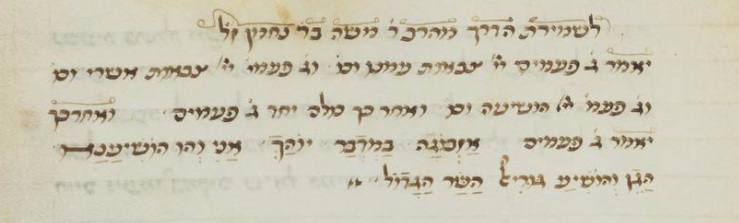 לשמירת הדרך מהרב ר' משה בר נחמן ז"ל
יאמר ג' פעמים יי' צבאות עמנו וס' וג' פעמי' יי' צבאות אשרי וס'
וג' פעמי' יי' הושיעה וס' ואחר כך כולם יחד ג' פעמים ואחר כך
יאמר ג' פעמים במדבר יוהך אני והו הושיענא
הגן והושיע השר הגדול